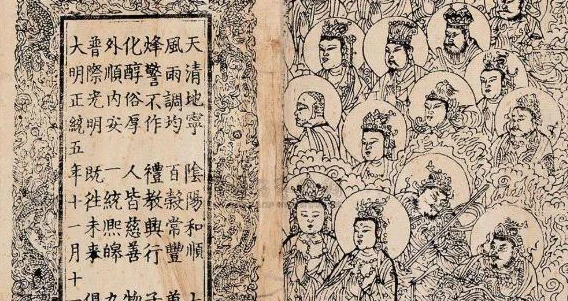 天清地寧 陰陽和順 七
風雨調均 百穀常豐
烽警不作 禮教興行 子
化醇俗厚 人皆慈善 物
外順內安 一統熙皞 九
普際光明 既往未來 俱
大明正統五年十一月十一